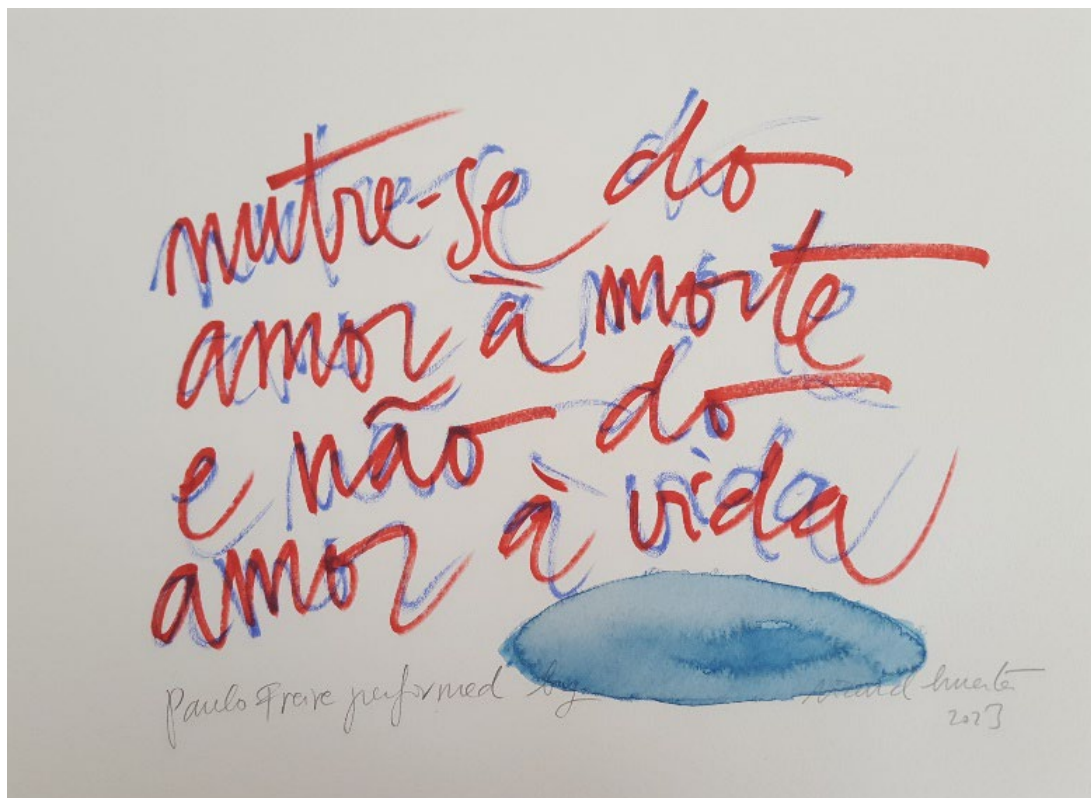 nutre-se do
amor à morte
e não do
amor à vida
Paulo Freire performed by ricard huerta
2023